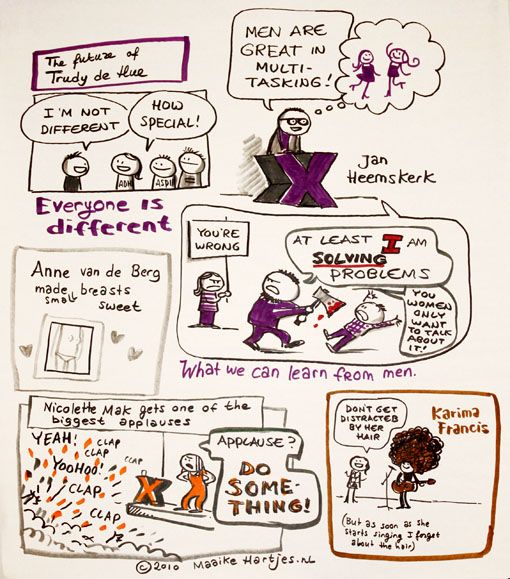 The future of
Trudy de Hue
I'M NOT
DIFFERENT
HOW
SPECIAL!
ADHD
ASDH
Everyone is
different
MEN ARE
GREAT IN
MULTI-
TASKING!
X
Jan
Heemskerk
YOU'RE
WRONG
AT LEAST I AM
SOLVING
PROBLEMS
YOU
WOMEN
ONLY
WANT
TO TALK
ABOUT
IT!
What we can learn from men.
Anne van de Berg
made small breasts
sweet
Nicolette Mak gets one of the
biggest applauses
YEAH!
CLAP
CLAP
CLAP
YOOHOO!
CLAP
CLAP
X
APPLAUSE?
DO
SOME-
THING!
DON'T GET
DISTRACTED
BY HER
HAIR
Karima
Francis
(But as soon as she
starts singing I forget
about the hair)
©2010 Maaike Hartjes.nl